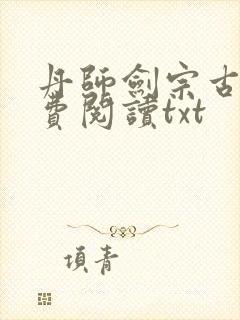 丹師劍宗古
費閱讀txt
項青